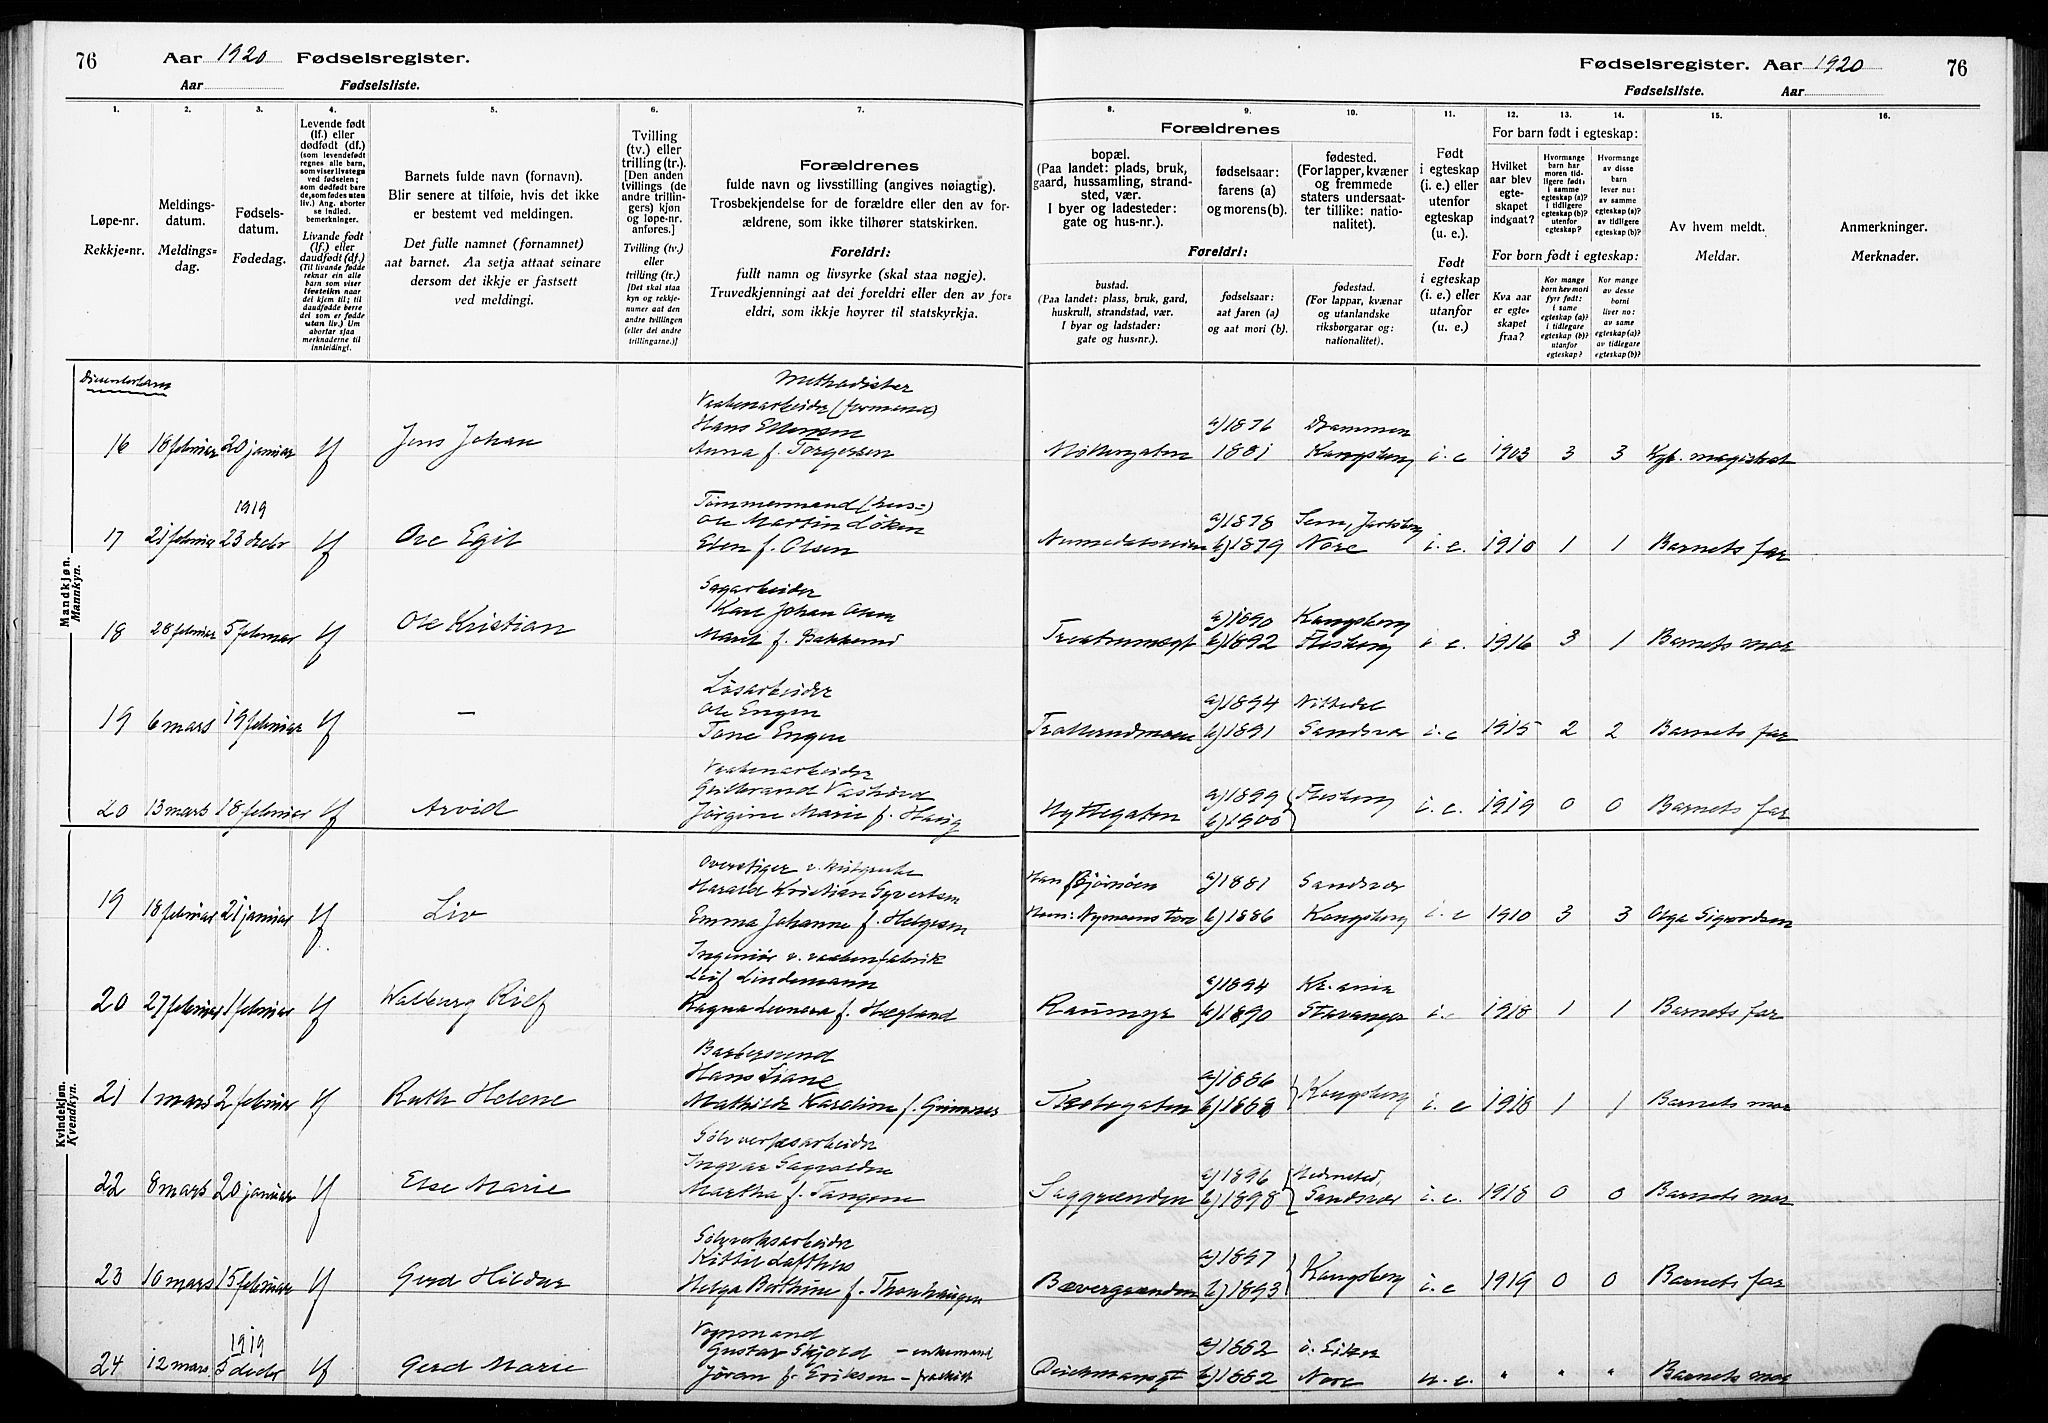 76 Aar 1920 Fødselsregister.
Aar Fødselsliste.
Fødselsregister. Aar 1920 76
Fødselsliste. Aar
1. 2. 3. 4. 5. 6. 7.
8. 9. 10. 11. 12. 13. 14. 15. 16.
Løpe-nr.
Rekkje-nr.
Meldings-
datum.
Meldings-
dag.
Fødsels-
datum.
Fødedag.
Levende født
(lf.) eller
dødfødt (df.)
(som levendefødt
regnes alle barn,
som viser livstegn
ved fødselen;
som dødfødt bare
de, som fødes uten
liv.) Ang. aborter
se indled.
bemerkninger.
Livande født
(lf.) eller
daudfødt (df.)
(Til livande fødde
reknar ein alle
barn som viser
livsteikn naar
dei kjem til; til
daudfødde berre
dei som er fødde
utan liv.) Um
abortar sjaa
merknaderne til
innleiding).
Barnets fulde navn (fornavn).
Blir senere at tilføie, hvis det ikke
er bestemt ved meldingen.
Det fulle namnet (fornamnet)
aat barnet. Aa setja attaat seinare
dersom det ikkje er fastsett
ved meldingi.
Tvilling
(tv.) eller
trilling (tr.).
[Den anden
tvillings (de
andre trillin-
gers) kjøn
og løpe-nr.
anføres.]
Tvilling (tv.)
eller
trilling (tr.)
[Det skal staa
kyn og rekkje-
numer aat den
andre tvillingen
(eller dei andre
trillingarne.)]
Forældrenes
fulde navn og livsstilling (angives nøiagtig).
Trosbekjendelse for de forældre eller den av for-
ældrene, som ikke tilhører statskirken.
Foreldri:
fullt namn og livsyrke (skal staa nøgje).
Truvedkjenningi aat dei foreldri eller den av for-
eldri, som ikkje høyrer til statskyrkja.
Forældrenes
bopæl.
(Paa landet: plads, bruk,
gaard, hussamling, strand-
sted, vær.
I byer og ladesteder:
gate og hus-nr.).
fødselsaar:
farens (a)
og morens (b).
fødested.
(For lapper, kvæner
og fremmede
staters undersaat-
ter tillike: natio-
nalitet).
Foreldri:
bustad.
(Paa landet: plass, bruk, gard,
huskrull, strandstad, vær.
I byar og ladstader:
gate og hus-nr.).
fødselsaar:
aat faren (a)
og aat mori (b).
fødestad.
(For lappar, kvænar
og utanlandske
riksborgarar og:
nationalitet).
Født
i egteskap
(i. e.) eller
utenfor
egteskap
(u. e.).
Født
i egteskap
(i. e.) eller
utanfor
(u. e.)
For barn født i egteskap:
Hvilket
aar blev
egte-
skapet
indgaat?
Hvormange
barn har
moren tid-
ligere født:
i samme
egteskap (a)?
i tidligere
egteskap (b)?
utenfor
egteskap?
Hvormange
av disse
barn
lever nu:
av samme
egteskap (a)?
av tidligere
egteskap (b)?
For born født i egteskap:
Kva aar
er egte-
skapet
fraa?
Kor mange
born hev mori
fyrr født:
i same
egteskap (a)?
i tidlegare
egteskap (b)?
utanfor
egteskap?
Kor mange
av desse
borni
liver no:
av same
egteskap (a)?
av tidlegare
egteskap (b)?
Av hvem meldt.
Meldar.
Anmerkninger.
Merknader.
Mandkjøn.
Mannkyn.
Methodister
Vaabenarbeider (formand)
Hans Ellersen
Anna f. Torgersen
16 18 februar 20 januar lf Jens Johan
Møllergaten a) 1876 1881 Drammen Kongsberg i. e 1903 3 3 Kgb. magistrat
1919
Tømmermand (hus=)
Ole Martin Løken
Elen f. Olsen
17 21 februar 23 decbr lf Ove Egil
Numedalsveien a) 1878 b) 1879 Sem, Jarlsberg Nore i. e. 1910 1 1 Barnets far
Sagarbeider
Karl Johan Olsen
Marit f. Bakkerud
18 28 februar 5 februar lf Ole Kristian
a) 1890 b) 1892 Kongsberg Flesberg i. e. 1916 3 1 Barnets mor
Løsarbeider
Ole Engen
Tone Engen
19 6 mars 19 februar lf —
a) 1894 b) 1891 Nittedal Sandsvær i. e 1915 2 2 Barnets far
Vaabenarbeider
Jørgine Marie f. Haug
20 13 mars 18 februar lf Arvid
Hyttegaten a) 1899 b) 1900 Flesberg i. e. 1919 0 0 Barnets far
Kvindekjøn.
Kvendkyn.
Harald Kristian Syvertsen
Emma Johanne f. Helgesen
19 18 februar 21 januar lf Liv
Han Bjørnøen
a) 1881 b) 1886 Sandsvær Kongsberg i. e 1910 3 3 Olga Sigurdsen
Ingeniør v. vaabenfabrik
Leif Lindemann
Ragna Leonora f. Høgland
20 27 februar 1 februar lf Walburg Rief
Raumyr a) 1894 b) 1890 Kr.ania Stavanger i. e 1918 1 1 Barnets far
Barbersvend
Hans Liane
Mathilde Karoline f. Grimsrud
21 1 mars 2 februar lf Ruth Helene
a) 1886 b) 1888 Kongsberg i. e 1918 1 1 Barnets mor
Sølvverksarbeider
Ingvar Sagvolden
Martha f. Tangene
22 8 mars 20 januar lf Else Marie
Saggrænden a) 1896 b) 1898 Hedensted, Sandsvær i. e. 1918 0 0 Barnets mor
Sølvverksarbeider
Kittil Lofthus
Helga Bothine f. Thorshaugen
23 10 mars 15 februar lf Gerd Hildur
Bævergrænden a) 1897 b) 1893 Kongsberg i. e 1919 0 0 Barnets far
1919
Vognmand
Gustav Skjold — enkemand
Jøran f. Eriksen — fraskilt
24 12 mars 5 decbr lf Gerd Marie
Deichmansgt a) 1882 b) 1882 ø. Eiker Nore u. e. " " " Barnets mor